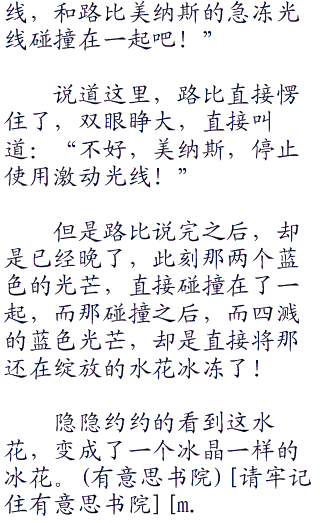 线，和路比美纳斯的急冻光
线碰撞在一起吧！”
说道这里，路比直接愣
住了，双眼睁大，直接叫
道：“不好，美纳斯，停止
使用激动光线！”
但是路比说完之后，却
是已经晚了，此刻那两个蓝
色的光芒，直接碰撞在了一
起，而那碰撞之后，而四溅
的蓝色光芒，却是直接将那
还在绽放的水花冰冻了！
隐隐约约的看到这水
花，变成了一个冰晶一样的
冰花。(有意思书院)[请牢记
住有意思书院][m.